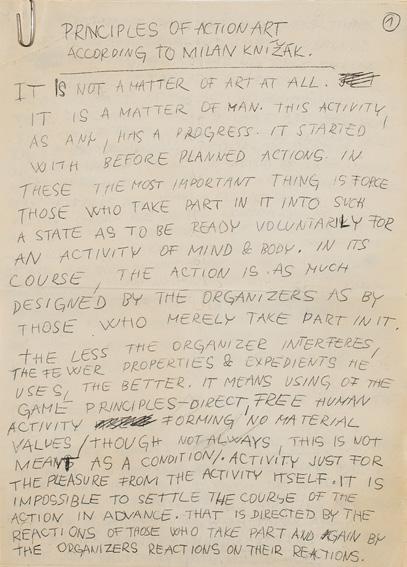 1
PRINCIPLES OF ACTION ART
ACCORDING TO MILAN KNIŽAK.
IT IS NOT A MATTER OF ART AT ALL.
IT IS A MATTER OF MAN. THIS ACTIVITY,
AS ANY, HAS A PROGRESS. IT STARTED
WITH BEFORE PLANNED ACTIONS. IN
THESE THE MOST IMPORTANT THING IS FORCE
THOSE WHO TAKE PART IN IT INTO SUCH
A STATE AS TO BE READY VOLUNTARILY FOR
AN ACTIVITY OF MIND & BODY. IN ITS
COURSE, THE ACTION IS AS MUCH
DESIGNED BY THE ORGANIZERS AS BY
THOSE WHO MERELY TAKE PART IN IT.
THE LESS THE ORGANIZER INTERFERES,
THE FEWER PROPERTIES & EXPEDIENTS HE
USES, THE BETTER. IT MEANS USING OF THE
GAME PRINCIPLES-DIRECT, FREE HUMAN
ACTIVITY FORMING NO MATERIAL
VALUES /THOUGH NOT ALWAYS, THIS IS NOT
MEANT AS A CONDITION/. ACTIVITY JUST FOR
THE PLEASURE FROM THE ACTIVITY ITSELF. IT IS
IMPOSSIBLE TO SETTLE THE COURSE OF THE
ACTION IN ADVANCE. THAT IS DIRECTED BY THE
REACTIONS OF THOSE WHO TAKE PART AND AGAIN BY
THE ORGANIZERS REACTIONS ON THEIR REACTIONS.